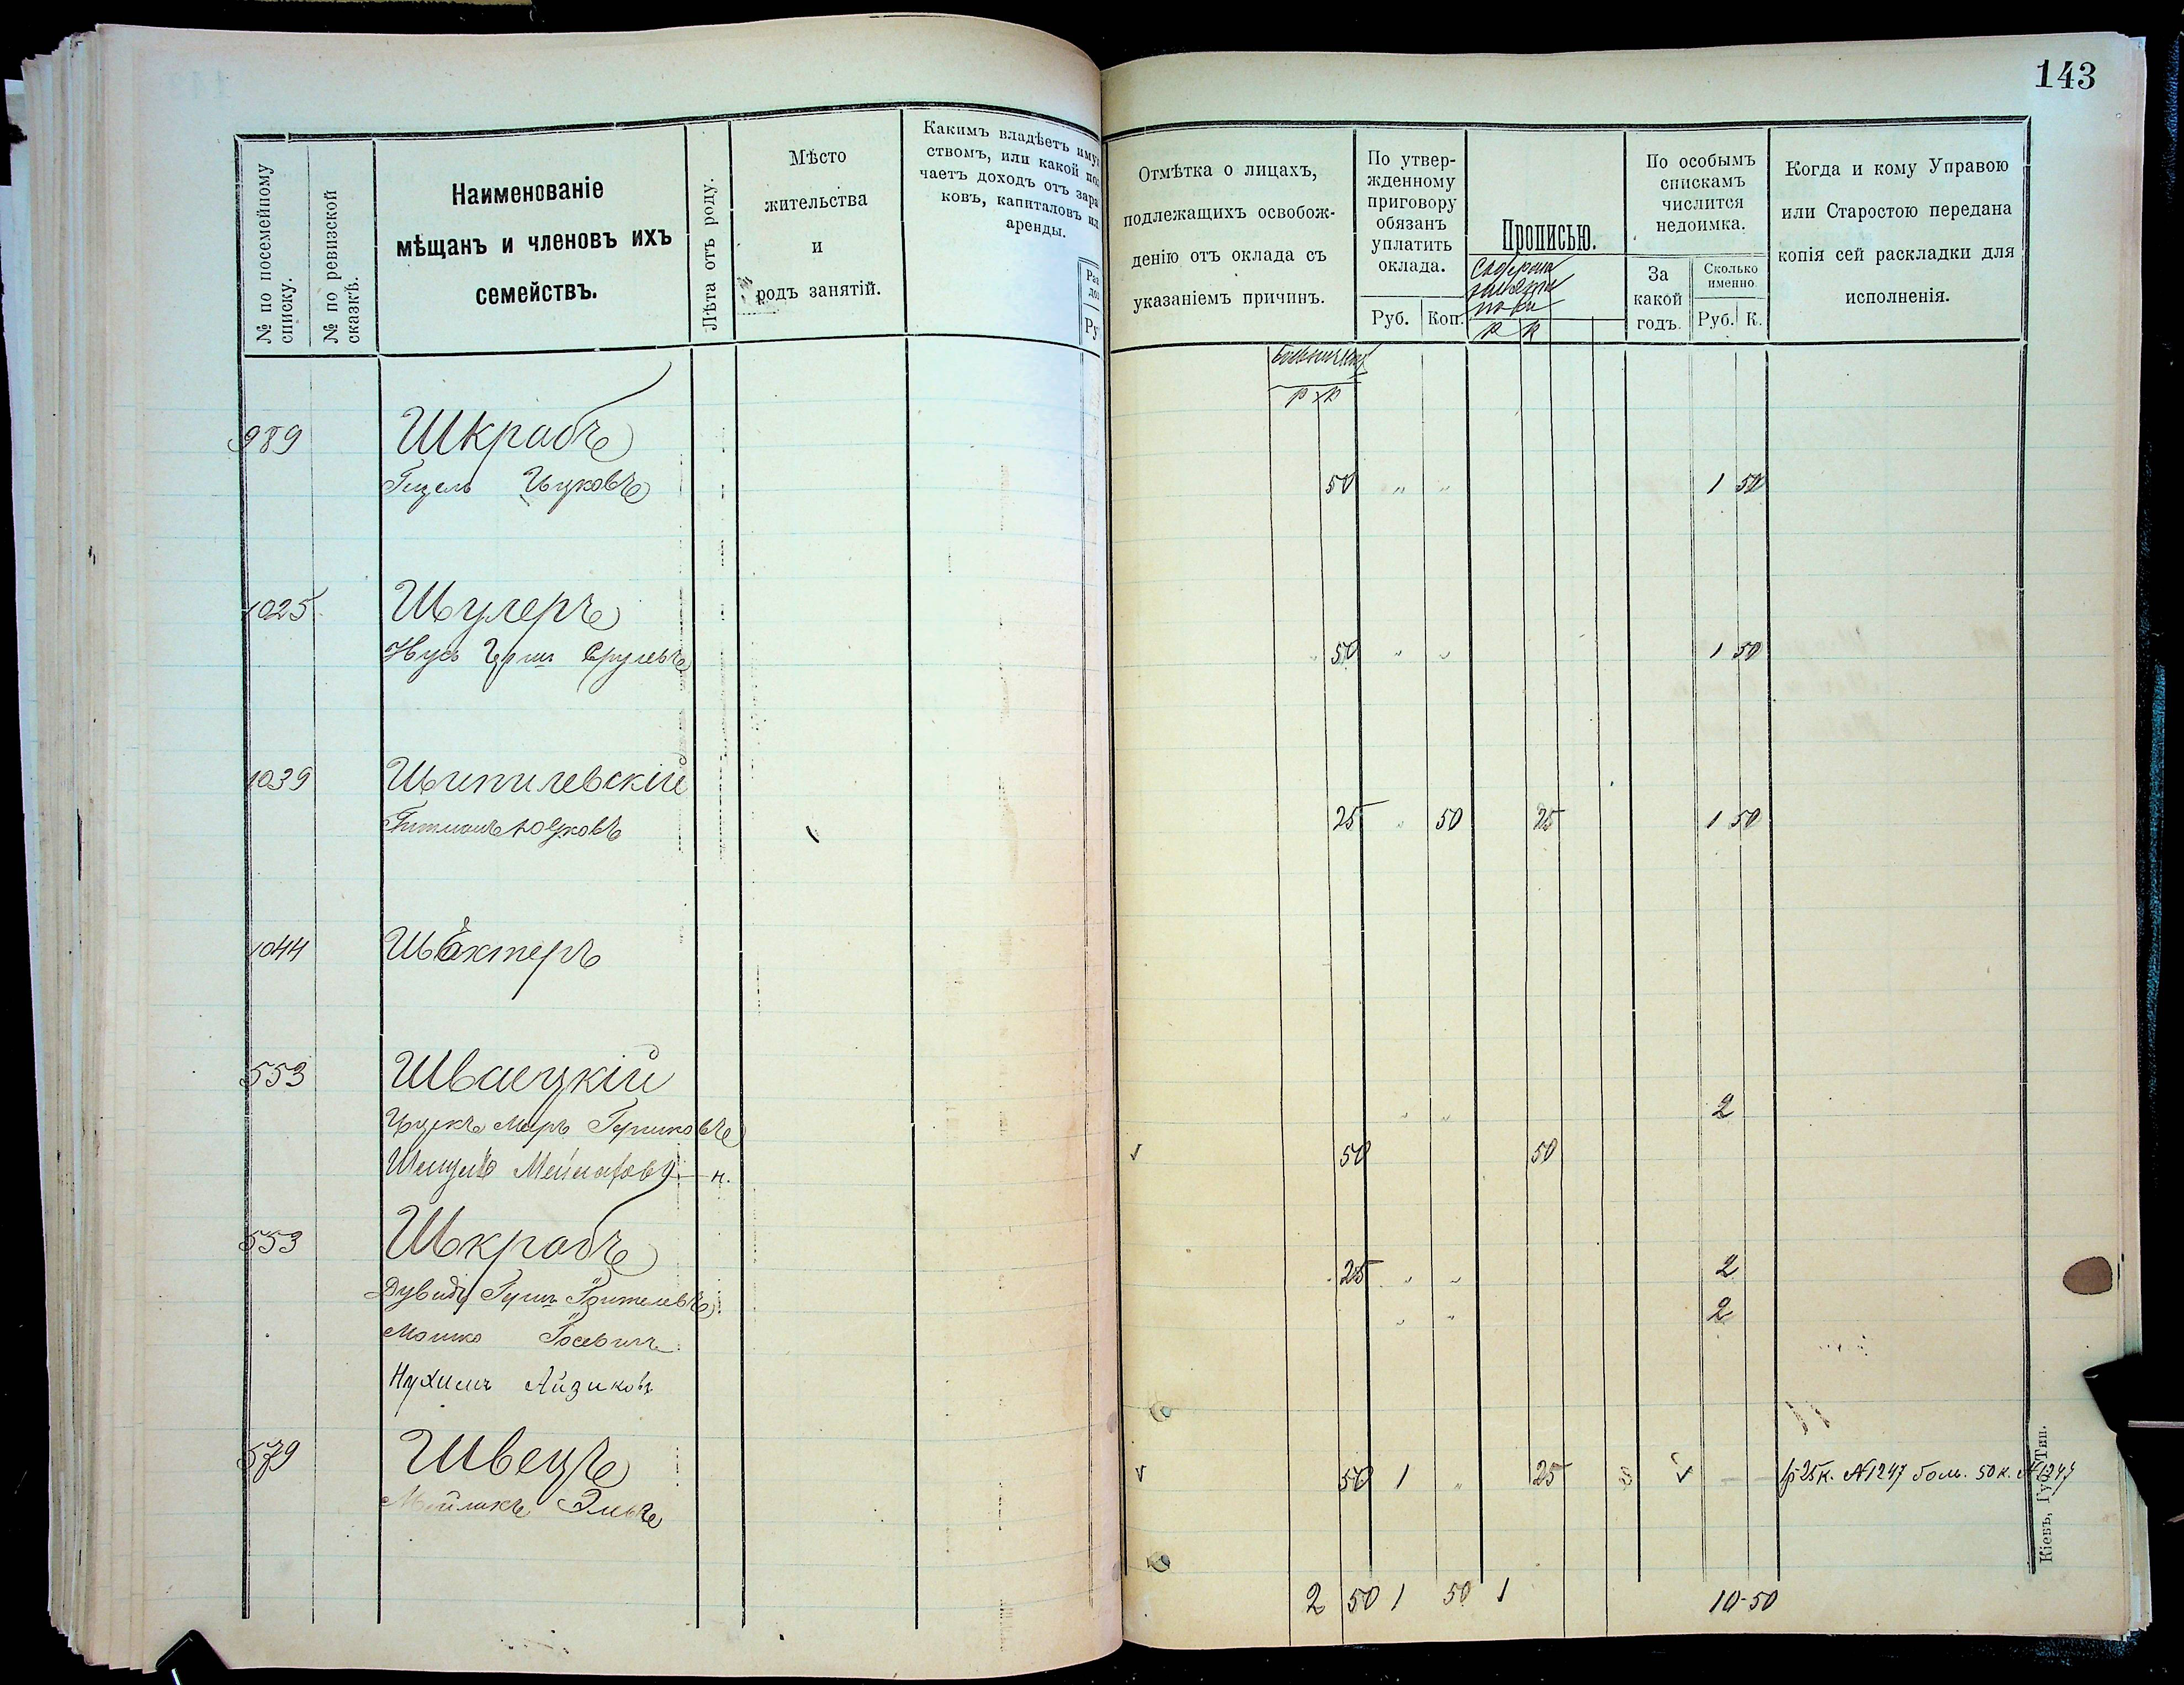 143
№ по посемейному списку.
№ по ревизской сказкѣ.
Наименованіе мѣщанъ и членовъ ихъ семействъ.
Лѣта отъ роду.
Мѣсто жительства и родъ занятій.
Какимъ владѣетъ иму
ствомъ, или какой по
чаетъ доходъ отъ зара
ковъ, капиталовъ ил
аренды.
Ру
Отмѣтка о лицахъ, подлежащихъ освобожденію отъ оклада съ указаніемъ причинъ.
По утвержденному приговору обязанъ уплатить оклада.
Руб. Коп.
Прописью.
р к
По особымъ спискамъ числится недоимка.
За какой годъ.
Сколько именно
Руб. К.
Когда и кому Управою или Старостою передана копія сей раскладки для исполненія.
р к
989 Шкрабъ
Ицковъ 50 " " 1 50
1025 Шулеръ
Нусъ Срулевъ 50 " " 1 50
1039 Шипилевскій
25 " 50 25 1 50
1044 Шахтеръ
553 Шваецкій
Ицекъ Меръ Гершковъ " " 2
50 50
553 Шкрабъ
Дувидъ Герш 25 " " 2
Мошко Іосевичъ " " 2
Нухимъ Айзиковъ
579 Швецъ 50 1 " 25 25к. №1247 бол. 50к. №1247
Мейлахъ Эль
2 50 1 50 1 10-50
Кіевъ, Губ. Тип.